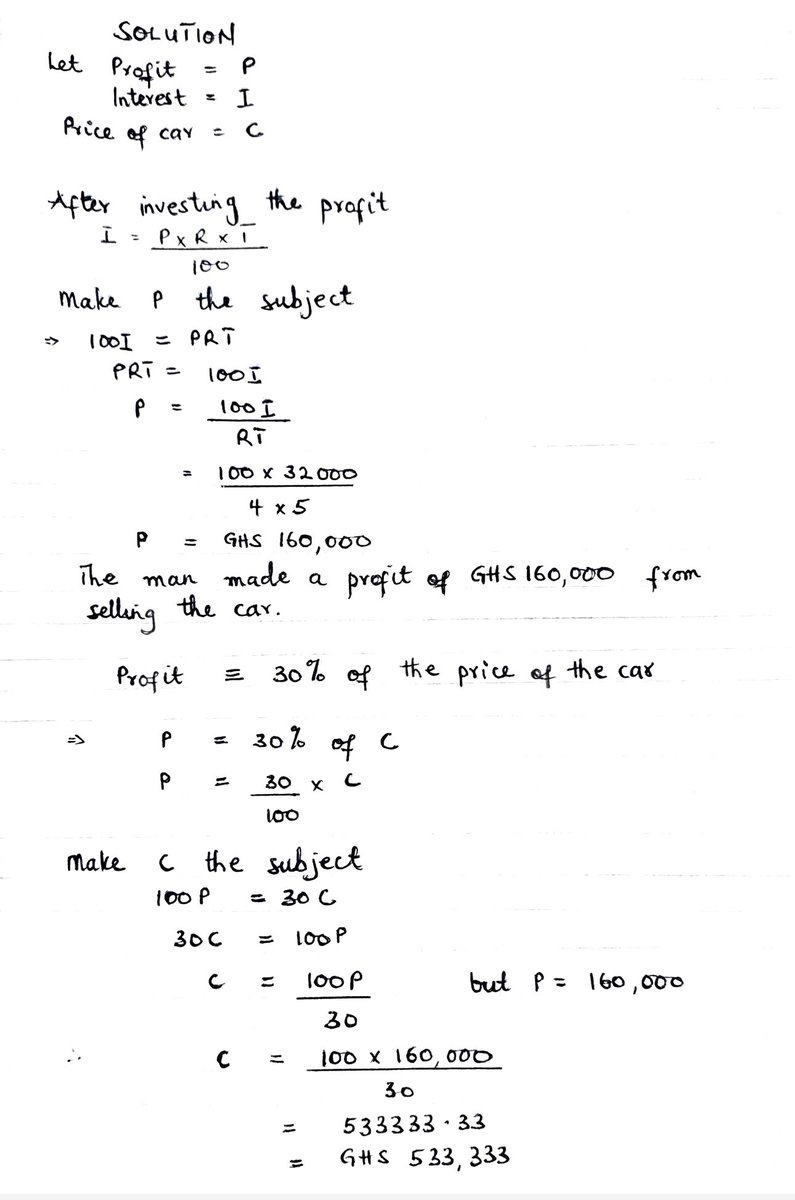 SOLUTION
Let Profit = P
Interest = I
Price of car = C
After investing the profit
I = P x R x T
100
Make P the subject
⇒ 100I = PRT
PRT = 100I
P = 100I
RT
= 100 x 32000
4 x 5
P = GHS 160,000
The man made a profit of GHS 160,000 from
selling the car.
Profit ≡ 30% of the price of the car
⇒ P = 30% of C
P = 30 x C
100
Make C the subject
100P = 30C
30C = 100P
C = 100P but P = 160,000
30
∴ C = 100 x 160,000
30
= 533333.33
= GHS 533,333